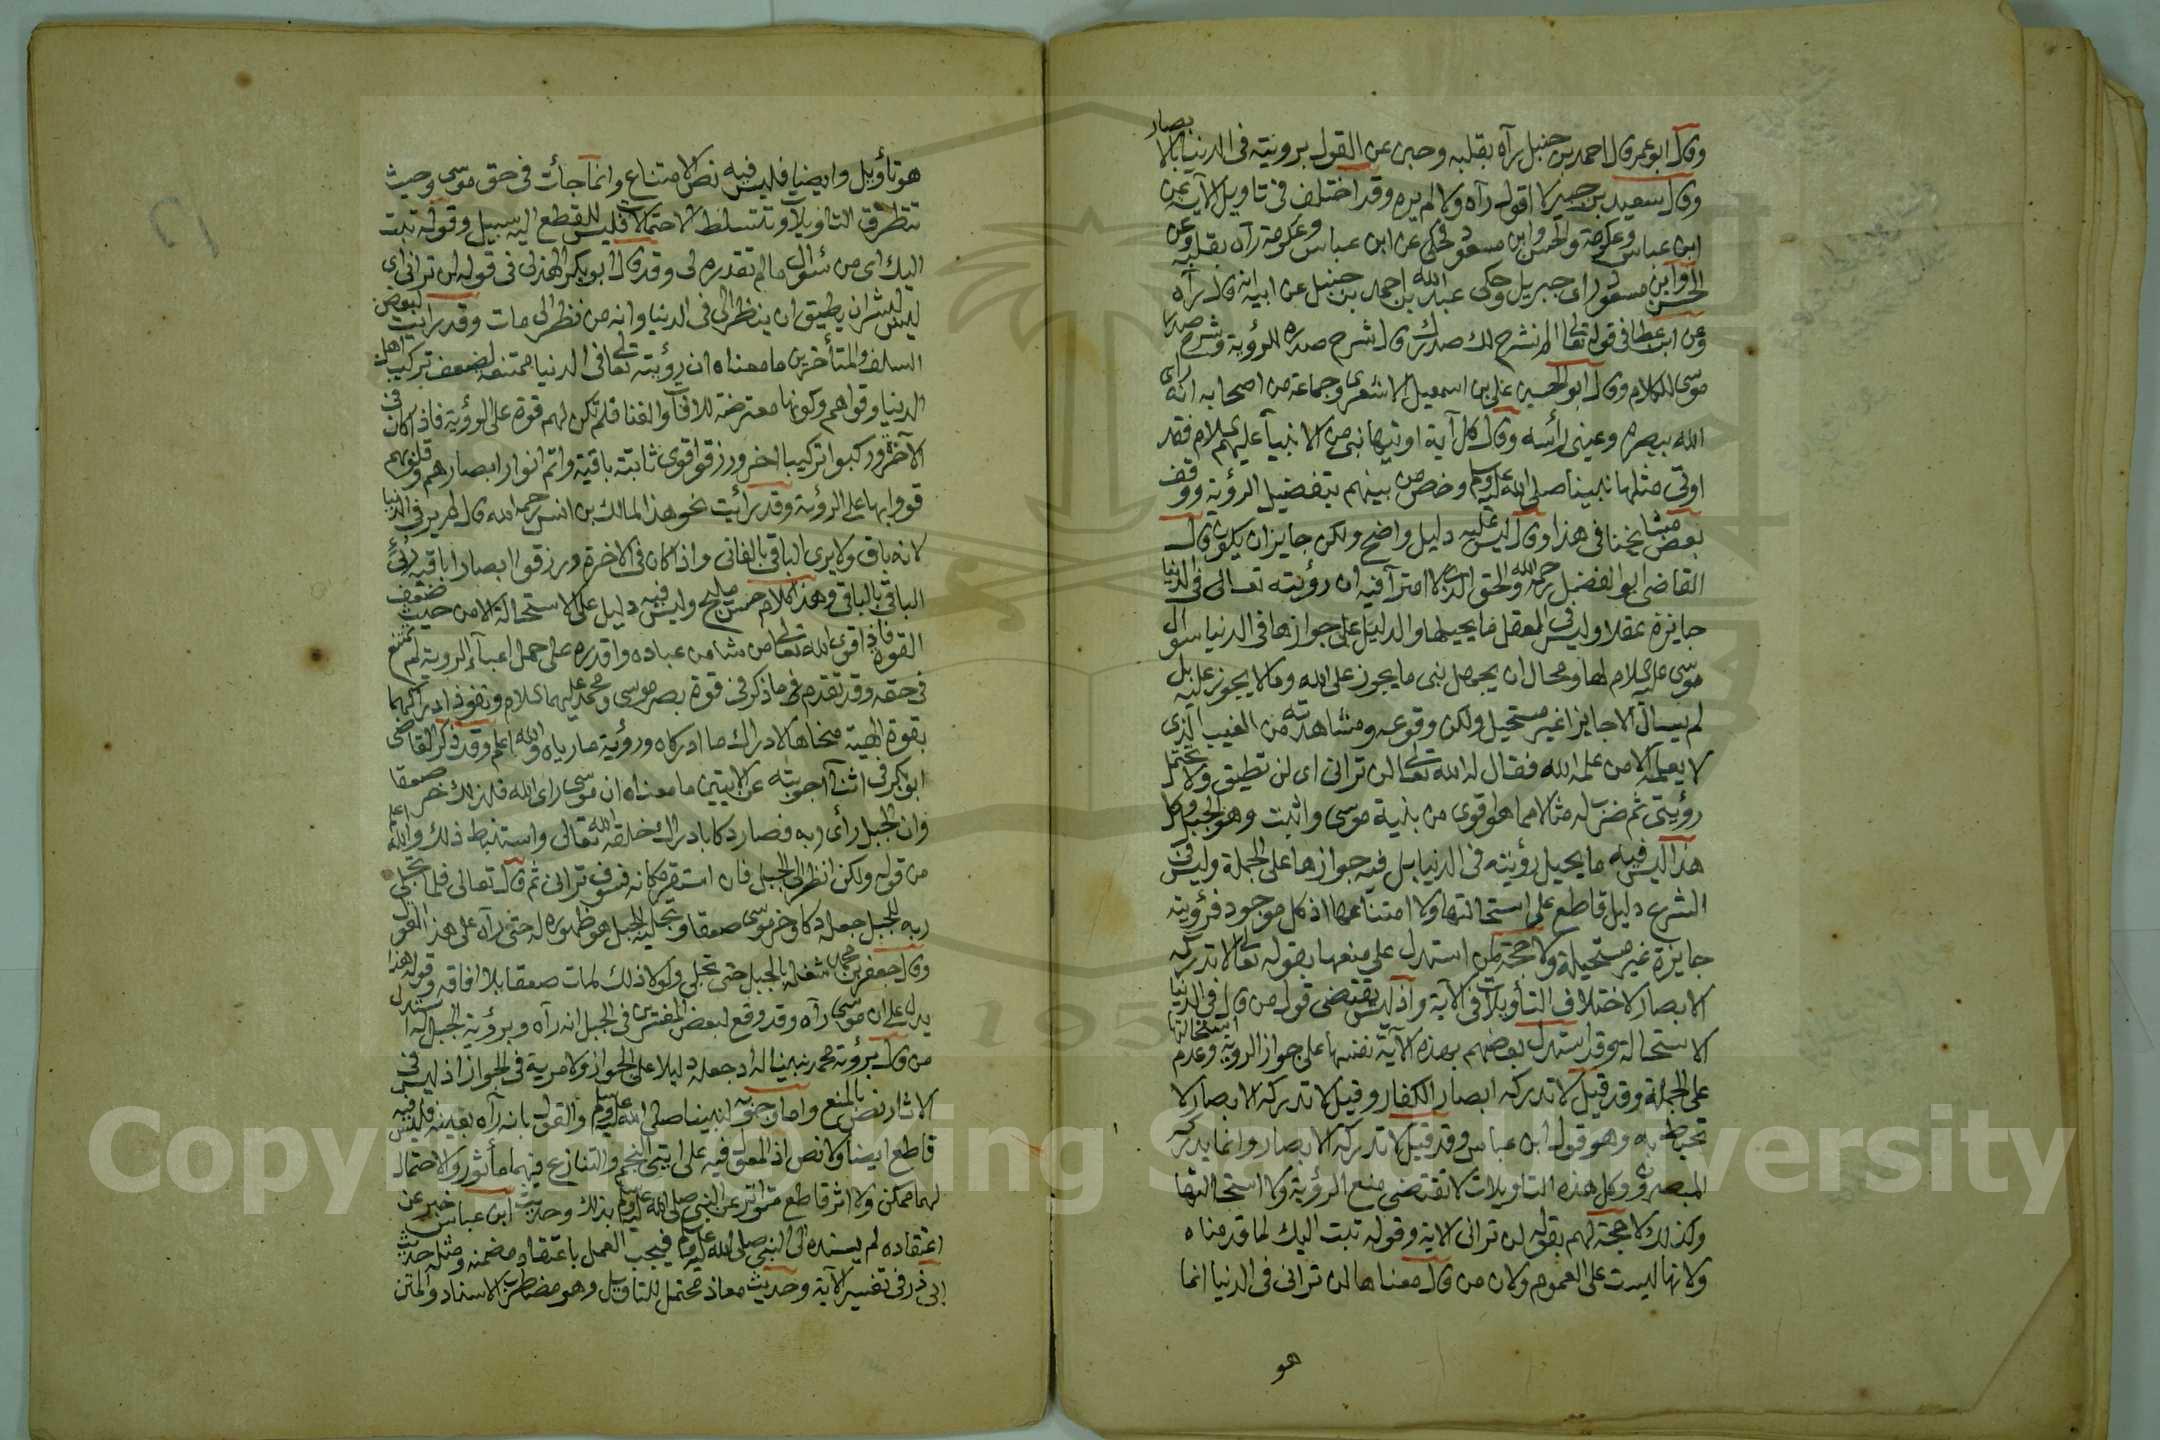 وقال ابو عمر قال احمد بن حنبل رآه بقلبه وجبن عن القول برويته في الدنيا بالابصار
وقال سعيد بن جبير لا اقول رآه ولا لم يره وقد اختلف في تاويل الآية عن
ابن عباس وعكرمة والحسن وابن مسعود فحكى عن ابن عباس وعكرمة رآه بقلبه وعن
الحسن وابن مسعود راى جبريل وحكى عبد الله بن احمد بن حنبل عن ابيه انه قال رآه
وعن ابن عطا في قوله تعالى الم نشرح لك صدرك قال شرح صدره للرؤية وشرح صدر
موسى للكلام وقال ابو الحسين علي بن اسمعيل الاشعري وجماعة من اصحابه انه راى
الله ببصره وعيني رأسه وقال كل آية اوتيها نبي من الانبيآء عليهم السلام فقد
اوتي مثلها نبينا صلى الله عليه وسلم وخص من بينهم بتفضيل الرؤية ووقف
بعض مشايخنا في هذا وقال ليس عليه دليل واضح ولكن جايز ان يكون قال
القاضي ابو الفضل رحمه الله والحق الذي لا امترآ فيه ان رؤيته تعالى في الدنيا
جايزة عقلا وليس في العقل ما يحيلها والدليل على جوازها في الدنيا سوال
موسى عليه السلام لها ومحال ان يجهل نبي ما يجوز على الله وما لا يجوز عليه بل
لم يسال الا جايزا غير مستحيل ولكن وقوعه ومشاهدته من الغيب الذي
لا يعلمه الا من علمه الله فقال له الله تعالى لن تراني اى لن تطيق ولا تحتمل
رؤيتي ثم ضرب له مثلا مما هو اقوى من بنية موسى واثبت وهو الجبل وكل
هذا ليس فيه ما يحيل رؤيته في الدنيا بل فيه جوازها على الجملة وليس في
الشرع دليل قاطع على استحالتها ولا امتناعها اذ كل موجود فرؤيته
جايزة غير مستحيلة ولا حجة لمن استدل على منعها بقوله تعالى لا تدركه
الابصار لاختلاف التأويلات في الآية واذ ليس يقتضي قول من قال في الدنيا
الاستحالة وقد استدل بعضهم بهذه الآية نفسها على جواز الروية وعدم استحالتها
على الجملة وقد قيل لا تدركه ابصار الكفار وقيل لا تدركه الابصار لا
تحيط به وهو قول ابن عباس وقد قيل لا تدركه الابصار وانما يدركه
المبصرون وكل هذه التاويلات لا تقتضي منع الرؤية ولا استحالتها
وكذلك لا حجة لهم بقوله لن تراني الاية وقوله تبت اليك لما قدمناه
ولانها ليست على العموم ولان من قال معناها لن تراني في الدنيا انما
هو
هو تأويل وايضا فليس فيه نص الامتناع وانما جائت في حق موسى وحيث
تتطرق التاويلات وتتسلط الاحتمالات فليس للقطع اليه سبيل وقوله تبت
اليك اى من سؤال ما لم تقدره لي وقد قال ابو بكر الهذلي في قوله لن تراني اى
ليس لبشر ان يطيق ان ينظر الى في الدنيا وانه من نظر الى مات وقد رايت لبعض
السلف والمتأخرين ما معناه ان رؤيته تعالى في الدنيا ممتنعة لضعف تركيب اهل
الدنيا وقواهم وكونها معترضة للافات والفنا فلم تكن لهم قوة على الرؤية فاذا كان في
الآخرة وركبوا تركيبا اخر ورزقوا قوى ثابتة باقية واتم انوار ابصارهم وقلوبهم
قووا بها على الرؤية وقد رائت نحو هذا لمالك بن انس رحمه الله قال لم ير في الدنيا
لانه باق ولا يرى الباقي بالفاني واذا كان في الاخرة ورزقوا ابصارا باقية رئى
الباقي بالباقي وهذا كلام حسن مليح وليس فيه دليل على الاستحالة الا من حيث ضعف
القوة فاذا قوى الله تعالى من شا من عباده واقدره على حمل اعبآء الروية لم تمتنع
في حقه وقد تقدم ما ذكر في قوة بصر موسى ومحمد عليهما السلام ونفوذ ادراكهما
بقوة الهية منحاها لادراك ما ادركاه ورؤية ما رياه والله اعلم وقد ذكر القاضي
ابو بكر في اثنآ اجوبته عن الايتين ما معناه ان موسى راى الله فلذلك خر صعقا
وان الجبل رأى ربه فصار دكا بادراك خلقه الله تعالى واستنبط ذلك والله اعلم
من قوله ولكن انظر الى الجبل فان استقر مكانه فسوف تراني ثم قال تعالى فلما تجلى
ربه للجبل جعله دكا وخر موسى صعقا وتجليه للجبل هو ظهوره له حتى رآه على هذا القول
وقال جعفر بن محمد شغله بالجبل حتى تجلى ولولا ذلك لمات صعقا بلا افاقة وقوله هذا
يدل على ان موسى رآه وقد وقع لبعض المفسرين في الجبل انه رآه وبرؤية الجبل له استدل
من قال برؤية محمد نبينا له اذ جعله دليلا على الجواز ولا مرية في الجواز اذ ليس في
الاثار نص بالمنع واما وجوبه لنبينا صلى الله عليه وسلم والقول بانه رآه بعينه فليس فيه
قاطع ايضا ولا نص اذ المعول فيه على ايتي النجم والتنازع فيهما مأثور والاحتمال
لهما ممكن ولا اثر قاطع متواتر عن النبي صلى الله عليه وسلم بذلك وحديث ابن عباس خبر عن
اعتقاده لم يسنده الى النبي صلى الله عليه وسلم فيجب العمل باعتقاد مضمنه ومثله حديث
ابي ذر في تفسير الآية وحديث معاذ محتمل للتاويل وهو مضطرب الاسناد والمتن
١٦
Copyright © King Saud University
195